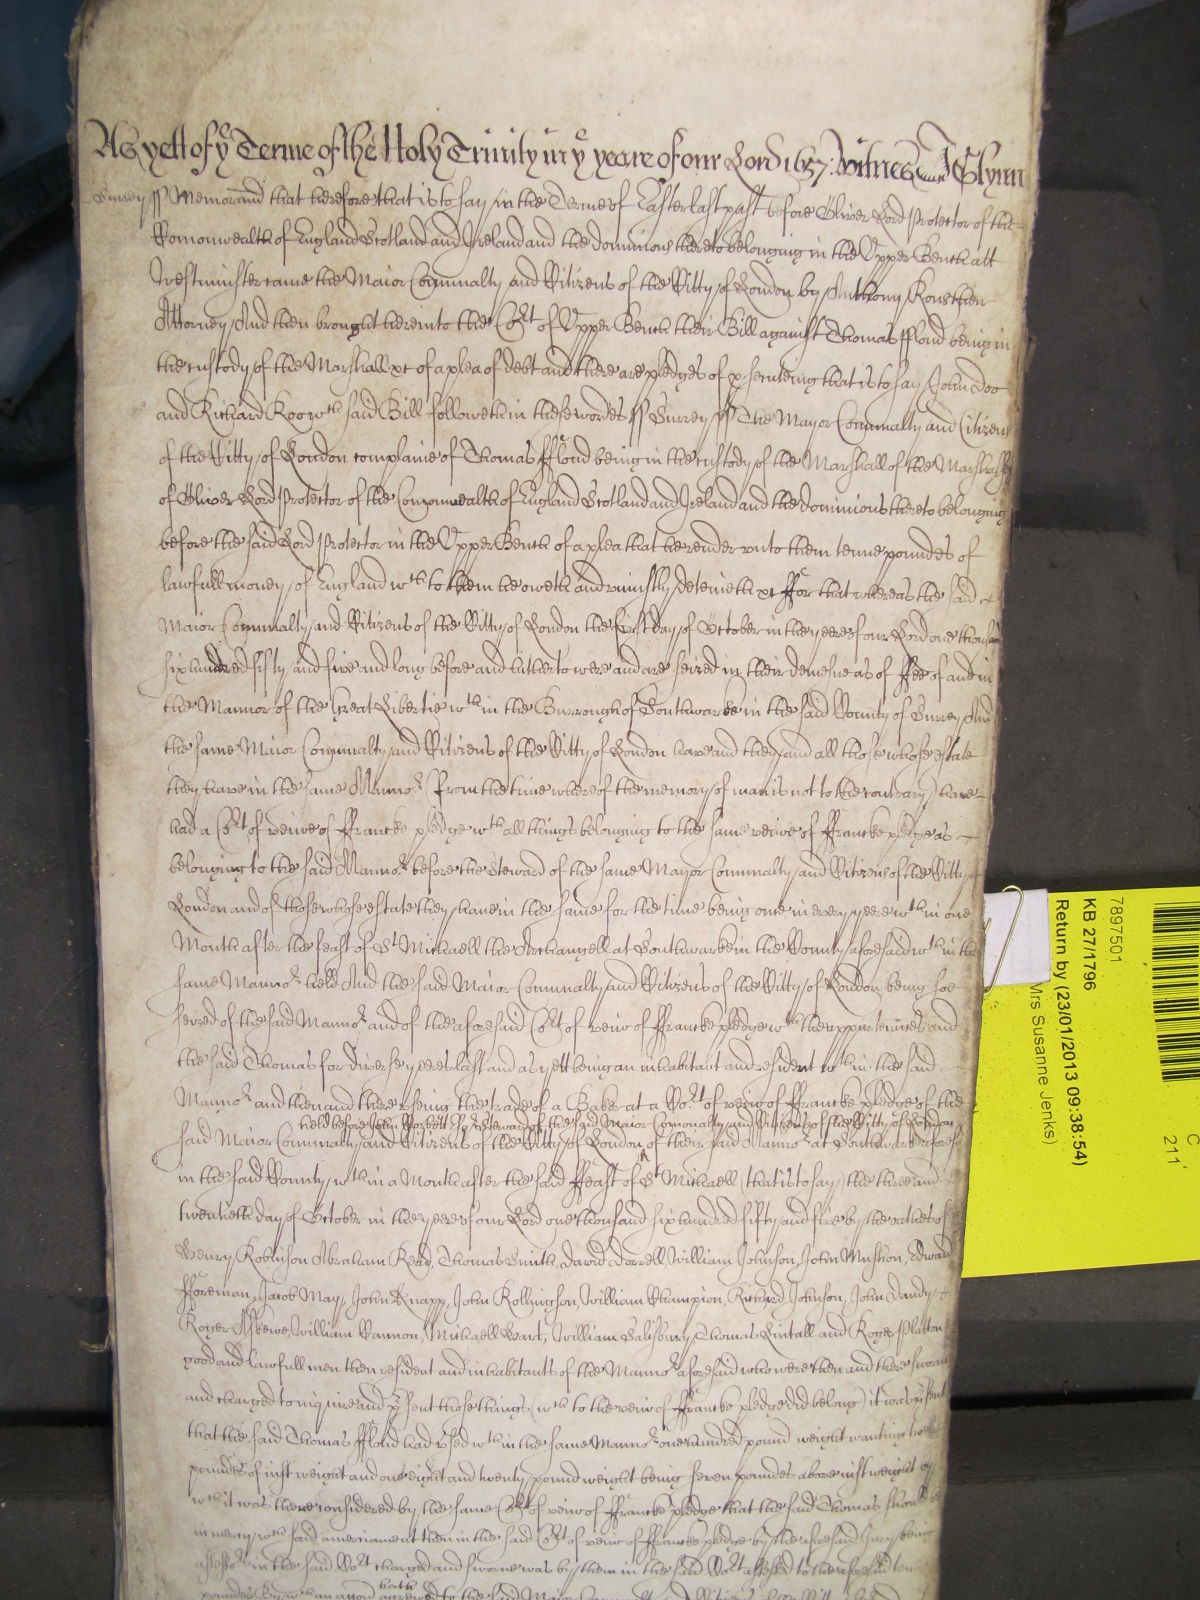 As yett of ye Terme of the Holy Trinity in ye yeare of our Lord 1657: Witnes J Glynn
Surrey ss Memorand that heretofore that is to say in the Terme of Easter last past before Oliver Lord Protector of the
Comonwealth of England Scotland and Ireland and the dominions thereto belonging in the Upper Bench att
Westminster came the Maior Comunalty and Citizens of the Citty of London by Anthony
Attorney And then brought here into the Cort of Upper Bench their Bill against Thomas ffloid being in
the custody of the Marshall xc of a plea of debt and there are pledges of prsecuteing that is to say John Doo
and Richard Roo wch said Bill followeth in these wordes ss Surrey ss The Mayor Comunalty and Citizens
of the Citty of London complaine of Thomas ffloid being in the custody of the Marshall of the Marshalsey
of Oliver Lord Protector of the Comonwealth of England Scotland and Ireland and the dominions thereto belonging
before the said Lord Protector in the Upper Bench of a plea that he render unto them tenne poundes of
lawfull money of England wch to them he oweth and uniustly deteineth xc ffor that whereas the said
Maior Comunalty and Citizens of the Citty of London the first day of October in the yeere of our Lord one thousand
six hundred fifty and five and long before and hitherto were and are seized in their demesne as of ffee of and in
the Mannor of the Great Libertie wth in the Burrough of Southwarke in the said County of Surrey And
the same Maior Comunalty and Citizens of the Citty of London have and they and all those whose estate
they have in the same Mannor (From the time whereof the memory of man is not to the contrary) have
had a Cort of veiwe of ffrancke pledge wth all things belonging to the same veiwe of ffrancke pledge as
belonging to the said Mannor before the Steward of the same Mayor Comunalty and Citizens of the Citty of
London and of those whose estate they have in the same for the time being once in every yeere wth in one
Month after the feast of St Michaell the Archangell at Southwarke in the County aforesaid wth in the
same Mannor held And the said Maior Comunalty and Citizens of the Citty of London being soe
seized of the said Mannor and of the aforesaid Cort of veiw of ffrancke pledge wth the appurtennces and
the said Thomas for divers yeeres last and as yett being an inhabitant and resident wth in the said
Mannor and then and there useing the trade of a Baker at a Cort of veiw of ffrancke pledge of the
held before John Steward of the said Maior Comonalty and Citizens of the Citty of London
said Maior Comunalty and Citizens of the Citty of London of their said Mannor at Southwarke aforesd
in the said County wth in a Month after the said ffeast of St Michaell (that is to say) the three and
twentieth day of October in the yeere of our Lord one thousand six hundred fifty and five by the oathes of
Henry Robinson Abraham Read, Thomas Smith, David Dorrell, William Johnson, John Mushon, Edward
fforeman, Jacob May, John Knapp, John Kollingson, William Champion, Richard Johnson, John Dandy
Roger Askewe, William Cannon, Michaell Hart, William Salisbury, Thomas Lintall and Roger Platton
good and lawfull men then resident and inhabitants of the Mannor aforesaid who were then and there sworne
and charged to inquire and prsent those things (wch to the veiw of ffrancke pledge did belong) it was prsented
that the said Thomas ffloid had used wth in the same Mannor one hundred pound weight wanting twelve
poundes of iust weight and one eight and twenty pound weight being seven poundes above iust weight
wch it was there considered by the same Cort of veiw of ffrancke pledge that the said Thomas should be
in mercy wch said amerciament then in the said Cort of veiw of ffrancke pledge by the aforesaid Jury being
assessors in the said Cort charged and sworne was by them in the said Cort assessed to the aforesaid tenne
hath
poundes By wch an accon accrewed to the said Maior Comunalty and Citizens
7897501
KB 27/1796
Return by (23/01/2013 09:38:54)
Mrs Susanne Jenks)
C
211